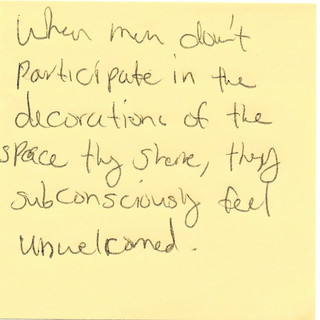 When men don't
participate in the
decorations of the
space they share, they
subconsciously feel
unwelcomed.